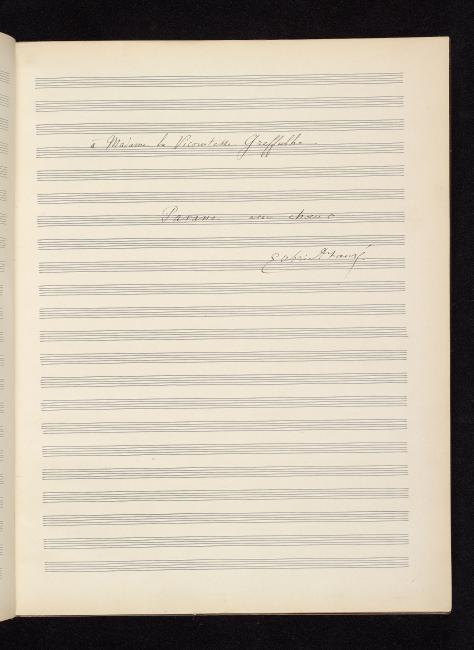 à Madame la Vicomtesse Greffulhe.
Pavane avec chœurs
Gabriel Fauré